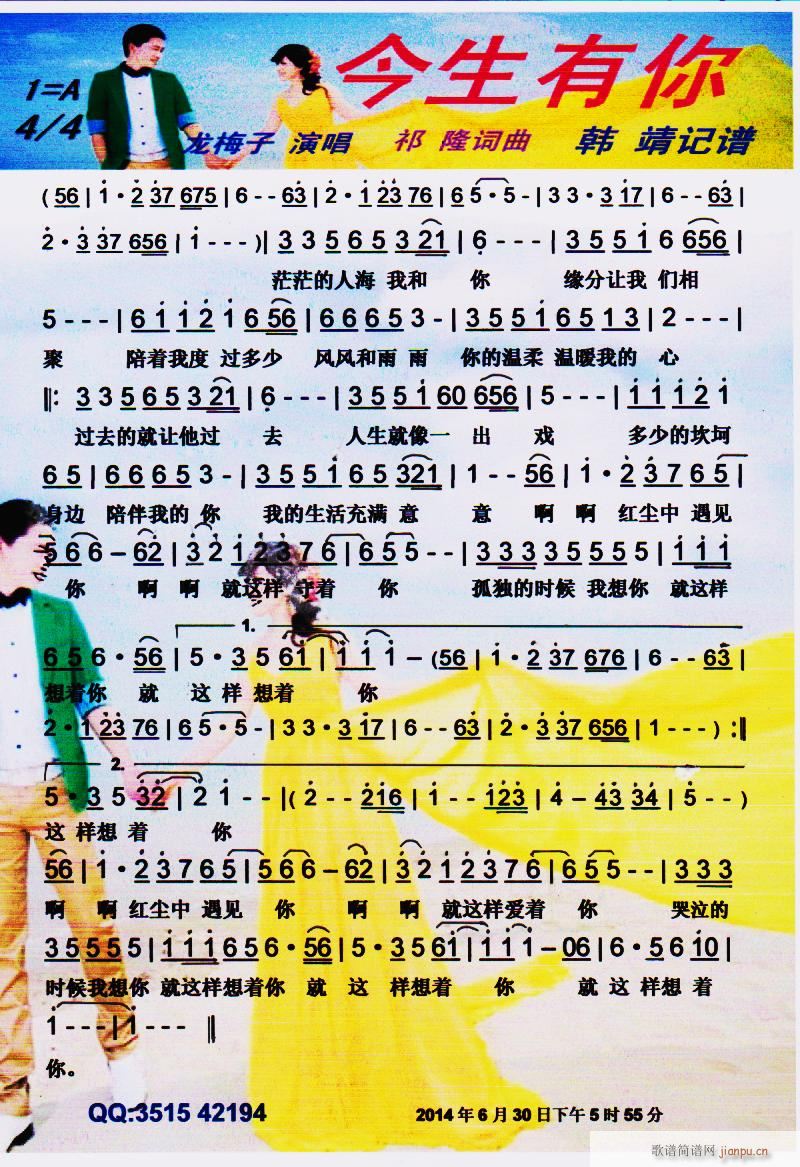 今生有你
1=A
4/4
龙梅子 演唱 祁 隆词曲 韩 靖记谱
(56|1·2 37 675|6--63|2·1 23 76|6 5·5-|3 3·3 17|6--63|
2·3 37 656|1---)|3 3 5 6 5 3 21|6---|3 5 5 1 6 656|
茫茫的人海 我和 你 缘分让我 们相
5---|6 1 1 2 1 6 56|6 6 6 5 3-|3 5 5 1 6 5 1 3|2---|
聚 陪着我度 过多少 风风和雨 雨 你的温柔 温暖我的 心
‖: 3 3 5 6 5 3 21|6---|3 5 5 1 60 656|5---|1 1 1 2 1
过去的就让他过 去 人生就像一 出 戏 多少的坎坷
6 5|6 6 6 5 3-|3 5 5 1 6 5 321|1--56|1·2 3 7 6 5|
身边 陪伴我的 你 我的生活充满 意 意 啊 啊 红尘中 遇见
5 6 6-62|3 2 1 2 3 7 6|6 5 5--|3 3 3 3 5 5 5 5|1 1 1
你 啊 啊 就这样 守着 你 孤独的时候 我想你 就这样
1.
6 5 6·56|5·3 5 61|1 1 1-(56|1·2 37 676|6--63|
想着你 就 这 样 想着 你
2·1 23 76|6 5·5-|3 3·3 17|6--63|2·3 37 656|1---) :‖
2.
5·3 5 32|2 1--|(2--216|1--123|4-43 34|5---)
这 样想 着 你
56|1·2 3 7 6 5|5 6 6-62|3 2 1 2 3 7 6|6 5 5--|3 3 3
啊 啊 红尘中 遇见 你 啊 啊 就这样爱着 你 哭泣的
3 5 5 5 5|1 1 1 6 5 6·56|5·3 5 61|1 1 1-06|6·5 6 10|
时候我想你 就这样想着你 就 这 样想着 你 就 这 样 想 着
1---|1--- ‖
你。
QQ:3515 42194 2014 年 6 月 30 日下午 5 时 55 分
歌谱简谱网 jianpu.cn